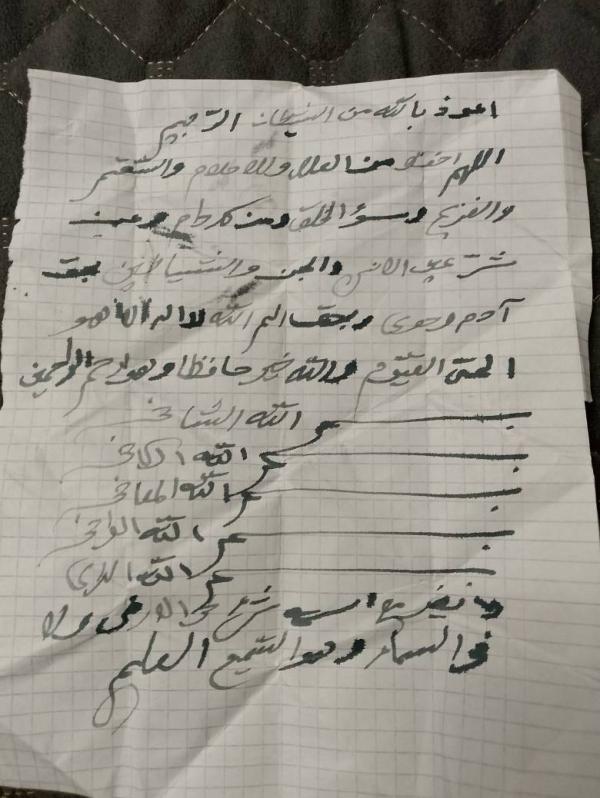 اعوذ بالله من الشيطان الرجيم
اللهم من العلل والاحلام والسقم
والفزع وسؤ الخلق ومن كل وعين
شر عين الانس والجن والشياطين بحق
آدم وحوى وبحق الم الله لا اله الا هو
الحي القيوم والله خير حافظا وهو ارحم الراحمين
بسم الله الشافي
بسم الله الكافي
بسم الله المعافي
بسم الله الوافي
بسم الله الذي
لا يضر مع اسمه شيئ في الارض ولا
في السماء وهو السميع العليم